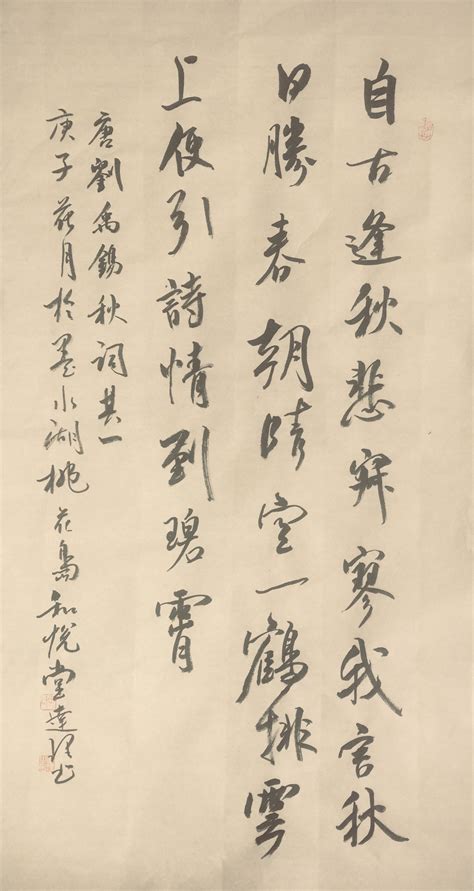 自古逢秋悲寂寥我言秋
日勝春朝晴空一鶴排雲
上便引詩情到碧霄
唐劉禹錫秋詞其一
庚子花月於墨水湖桃花島和悅堂達